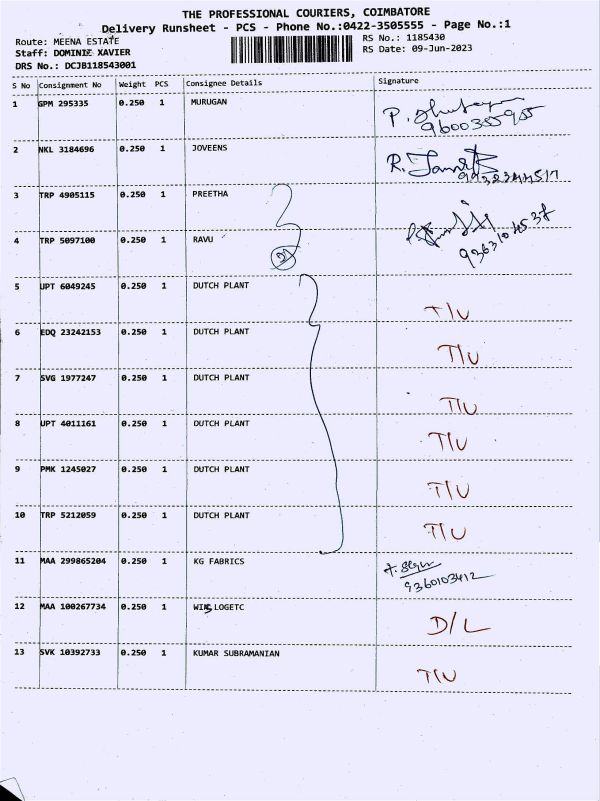 THE PROFESSIONAL COURIERS, COIMBATORE
Delivery Runsheet - PCS - Phone No.:0422-3505555 - Page No.:1
Route: MEENA ESTATE
RS No.: 1185430
Staff: DOMINIC XAVIER
RS Date: 09-Jun-2023
DRS No.: DCJB118543001
S No Consignment No Weight PCS Consignee Details Signature
1 GPM 295335 0.250 1 MURUGAN
9600355955
2 NKL 3184696 0.250 1 JOVEENS
3 TRP 4905115 0.250 1 PREETHA
4 TRP 5097100 0.250 1 RAVU
2
5 UPT 6049245 0.250 1 DUTCH PLANT T/U
6 EDQ 23242153 0.250 1 DUTCH PLANT T/U
7 SVG 1977247 0.250 1 DUTCH PLANT T/U
8 UPT 4011161 0.250 1 DUTCH PLANT T/U
9 PMK 1245027 0.250 1 DUTCH PLANT T/U
10 TRP 5212059 0.250 1 DUTCH PLANT T/U
11 MAA 299865204 0.250 1 KG FABRICS
9360103412
12 MAA 100267734 0.250 1 LOGETC D/L
13 SVK 10392733 0.250 1 KUMAR SUBRAMANIAN T/U